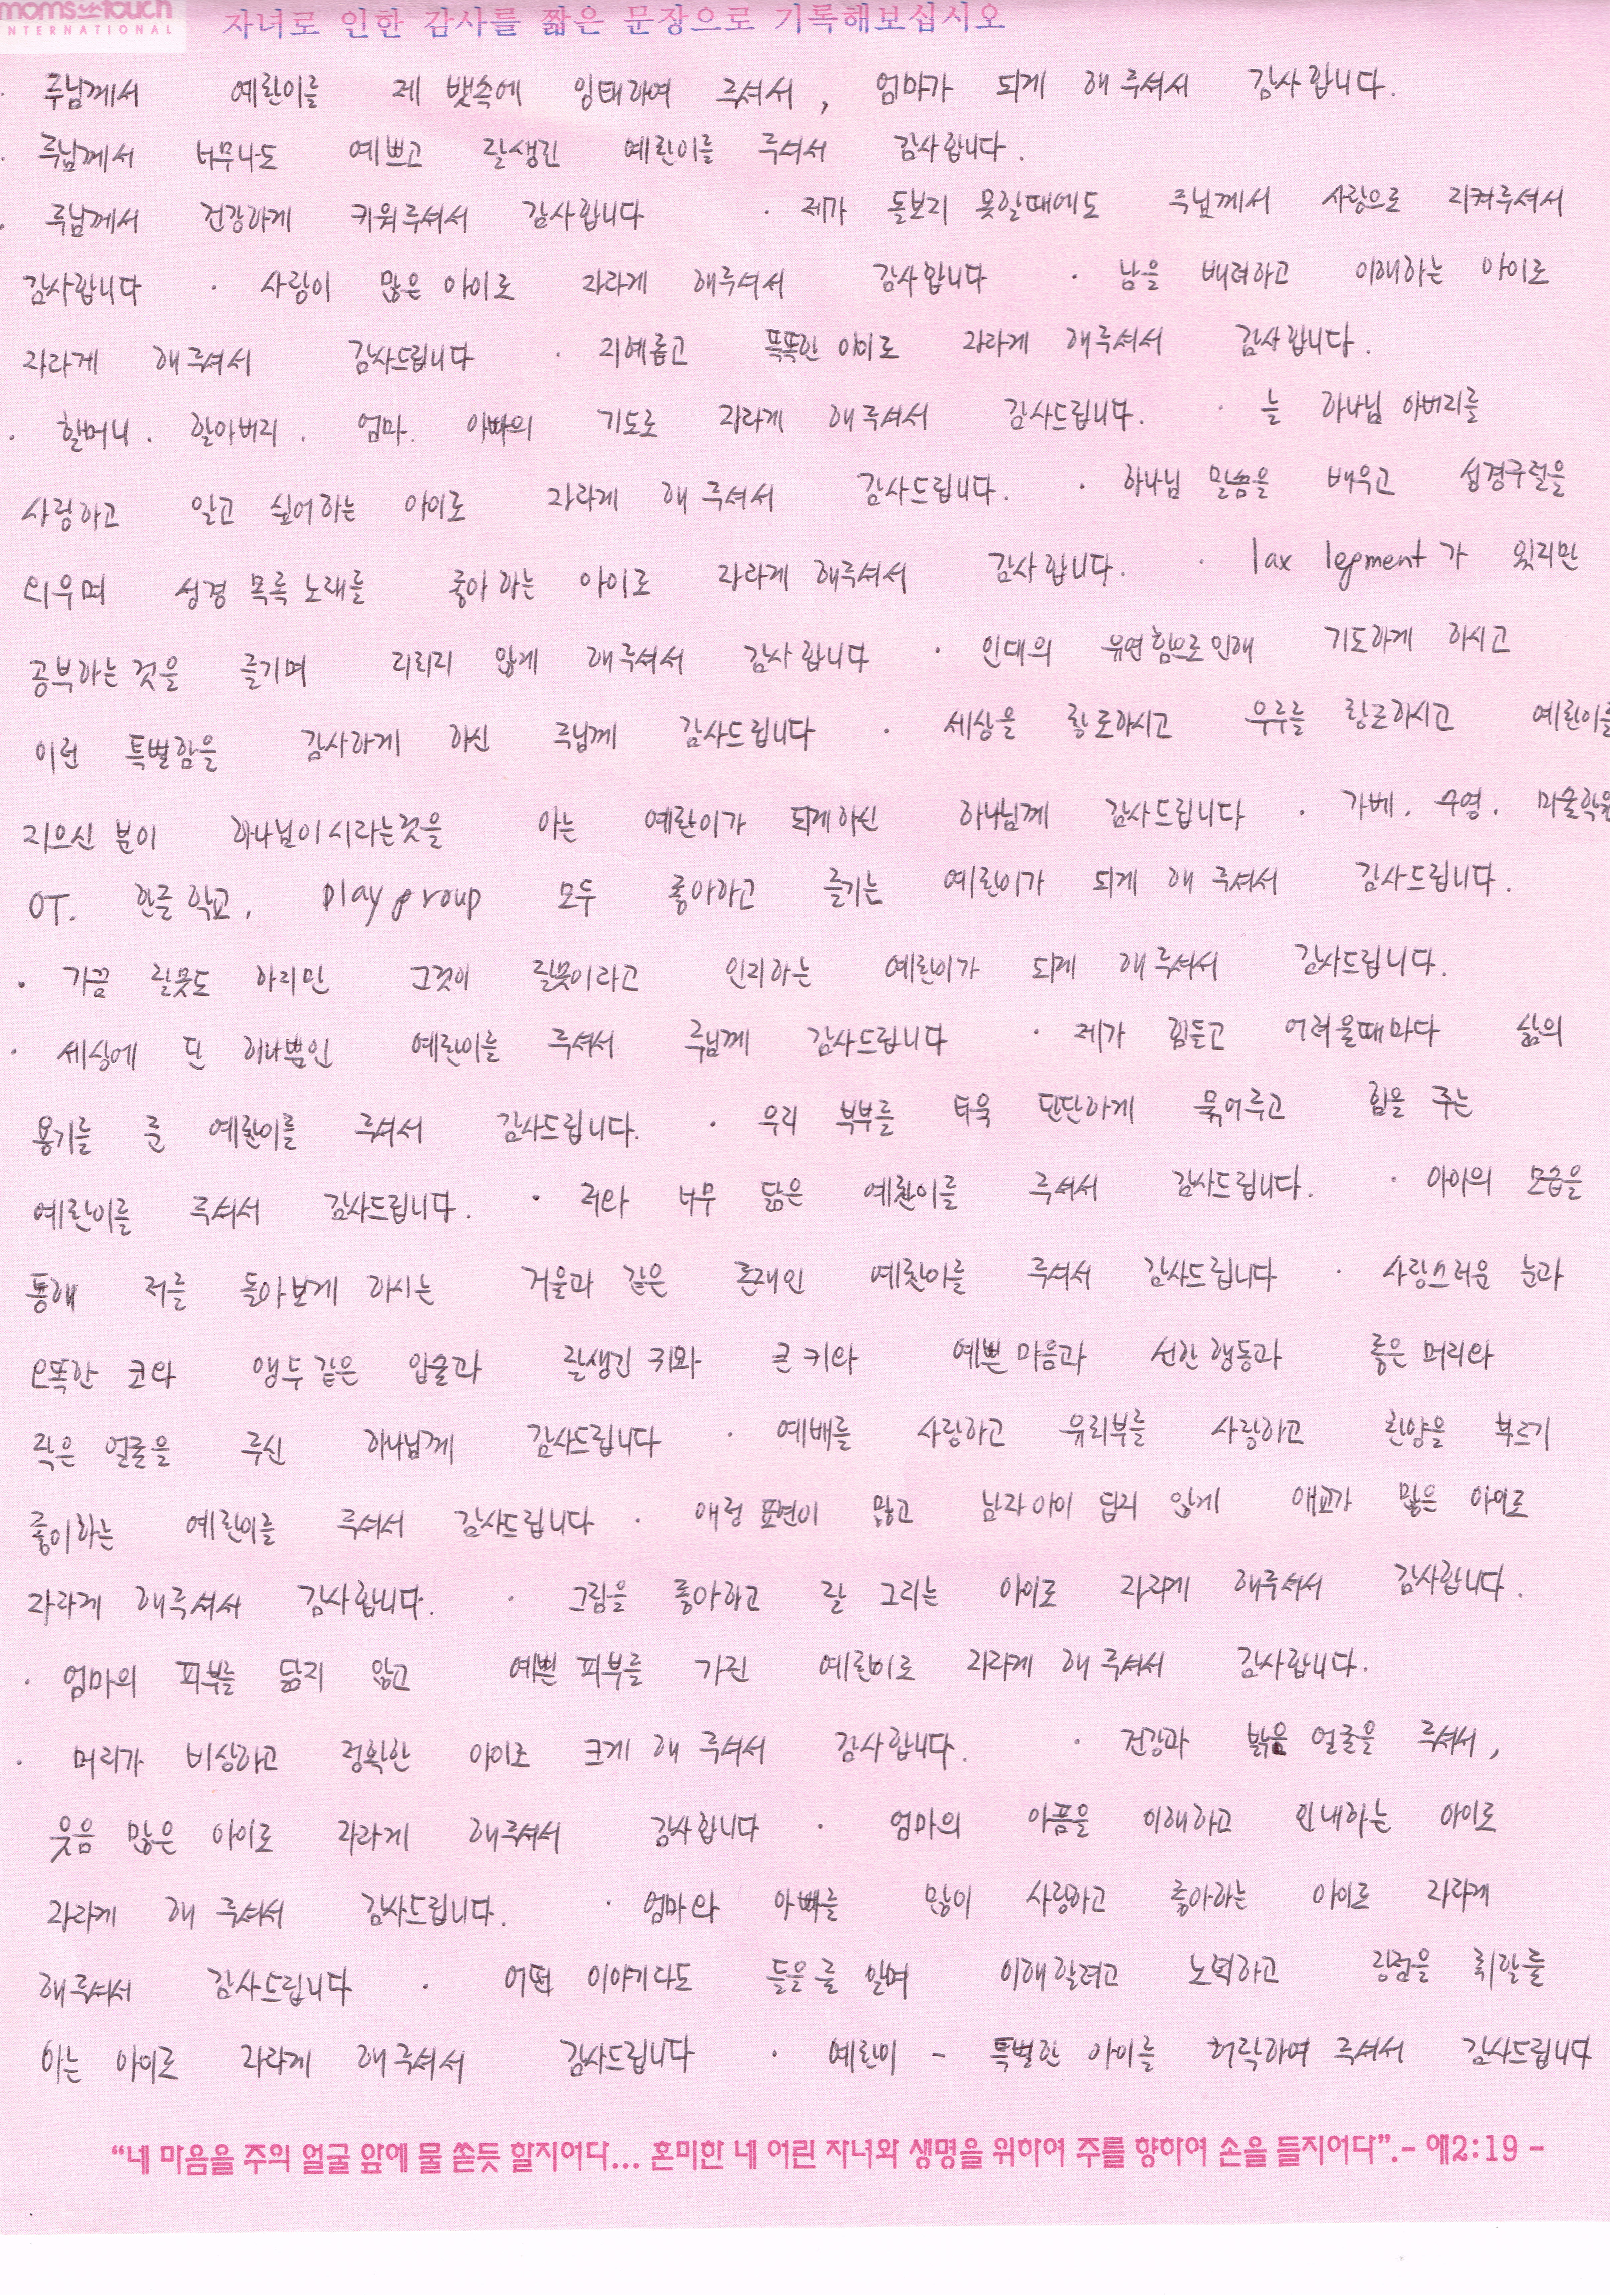 moms in touch
INTERNATIONAL
자녀로 인한 감사를 짧은 문장으로 기록해보십시오
· 주님께서 예린이를 제 뱃속에 잉태하여 주셔서, 엄마가 되게 해 주셔서 감사합니다.
· 주님께서 너무나도 예쁘고 잘생긴 예린이를 주셔서 감사합니다.
· 주님께서 건강하게 키워주셔서 감사합니다 · 제가 돌보지 못할때에도 주님께서 사랑으로 지켜주셔서
감사합니다 · 사랑이 많은 아이로 자라게 해주셔서 감사합니다 · 남을 배려하고 이해하는 아이로
자라게 해 주셔서 감사드립니다 · 지혜롭고 똑똑한 아이로 자라게 해 주셔서 감사합니다.
· 할머니. 할아버지. 엄마. 아빠의 기도로 자라게 해 주셔서 감사드립니다. · 늘 하나님 아버지를
사랑하고 알고 싶어하는 아이로 자라게 해 주셔서 감사드립니다. · 하나님 말씀을 배우고 성경구절을
외우며 성경 목록 노래를 좋아 하는 아이로 자라게 해주셔서 감사합니다. · lax legment가 있지만
공부하는 것을 즐기며 지치지 않게 해주셔서 감사합니다 · 인대의 유연함으로인해 기도하게 하시고
이런 특별함을 감사하게 하신 주님께 감사드립니다 · 세상을 창조하시고 우주를 창조하시고 예린이를
지으신 분이 하나님이시라는것을 아는 예린이가 되게하신 하나님께 감사드립니다 · 가베. 수영. 미술학원
OT. 한글 학교, playgroup 모두 좋아하고 즐기는 예린이가 되게 해 주셔서 감사드립니다.
· 가끔 잘못도 하지만 그것이 잘못이라고 인지하는 예린이가 되게 해 주셔서 감사드립니다.
· 세상에 단 하나뿐인 예린이를 주셔서 주님께 감사드립니다 · 제가 힘들고 어려울때마다 삶의
용기를 준 예린이를 주셔서 감사드립니다. · 우리 부부를 더욱 단단하게 묶어주고 힘을 주는
예린이를 주셔서 감사드립니다. · 저와 너무 닮은 예린이를 주셔서 감사드립니다. · 아이의 모습을
통해 저를 돌아보게 하시는 거울과 같은 존재인 예린이를 주셔서 감사드립니다 · 사랑스러운 눈과
오똑한 코와 앵두같은 입술과 잘생긴 귀와 큰 키와 예쁜 마음과 선한 행동과 좋은 머리와
작은 얼굴을 주신 하나님께 감사드립니다 · 예배를 사랑하고 유치부를 사랑하고 찬양을 부르기
좋아하는 예린이를 주셔서 감사드립니다 · 애정 표현이 많고 남자아이 답지 않게 애교가 많은 아이로
자라게 해주셔서 감사합니다. · 그림을 좋아하고 잘 그리는 아이로 자라게 해주셔서 감사합니다.
· 엄마의 피부를 닮지 않고 예쁜 피부를 가진 예린이로 자라게 해 주셔서 감사합니다.
· 머리가 비상하고 정확한 아이로 크게 해 주셔서 감사합니다. · 건강과 밝은 얼굴을 주셔서,
웃음 많은 아이로 자라게 해주셔서 감사합니다 · 엄마의 아픔을 이해하고 인내하는 아이로
자라게 해 주셔서 감사드립니다. · 엄마와 아빠를 많이 사랑하고 좋아하는 아이로 자라게
해주셔서 감사드립니다 · 어떤 이야기라도 들을줄 알며 이해할려고 노력하고 장점을 취할줄
아는 아이로 자라게 해 주셔서 감사드립니다 · 예린이 - 특별한 아이를 허락하여 주셔서 감사드립니다
“네 마음을 주의 얼굴 앞에 물 쏟듯 할지어다... 혼미한 네 어린 자녀와 생명을 위하여 주를 향하여 손을 들지어다”.- 애2:19 -